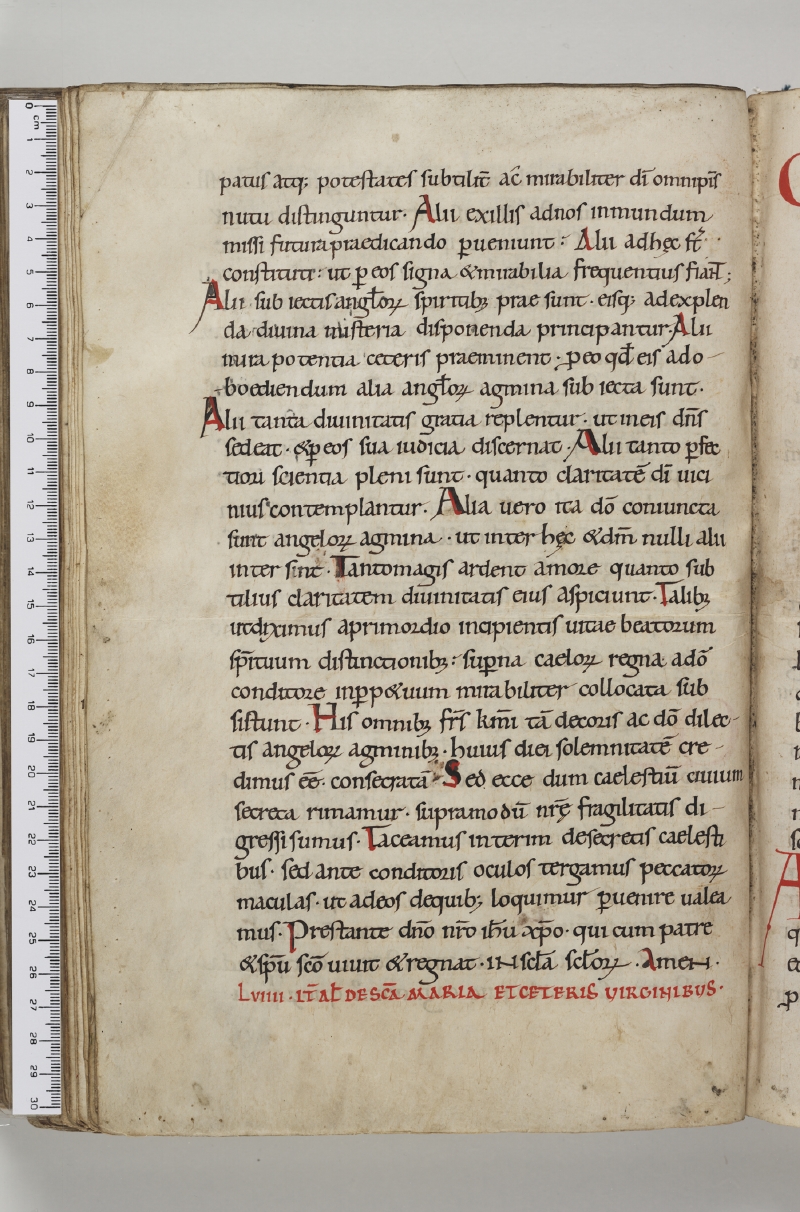 patus atq; potestates subtilit̄ ac̄ mirabiliter dī omnip̄is
nutu distinguntur. Alii exillis adnos inmundum
missi futura praedicando ꝑueniunt: Alii adhęc st̄
constituti: ut ꝑ eos signa &mirabilia frequentius fiant;
Alii sub iectis angłoꝝ spiritibꝫ prae sunt. eisq; adexplen
da diuina misteria disponenda principantur. Alii
mira potentia ceteris praeminent; ꝑeo qđ eis ado
boediendum alia angłoꝝ agmina sub iecta sunt.
Alii tanta diuinitatis gratia replentur. ut ineis dn̄s
sedeat. &ꝑeos sua iudicia discernat. Alii tanto ꝑfec
tiori scientia pleni sunt. quanto claritatē dī uici
nius contemplantur. Alia uero ita dō coniuncta
sunt angeloꝝ agmina. ut inter hęc &dm̄ nulli alii
inter sint. Tantomagis ardent amore quanto sub
tilius claritatem diuinitatis eius aspiciunt. Talibꝫ
utdiximus aprimordio incipientis uitae beatorum
sp̄irituum distinctionibꝫ: suꝑna caeloꝝ regna adō
conditore inꝑp&uum mirabiliter collocata sub
sistunt. His omnibꝫ fr̄s km̄i tā decoris ac dō dilec
tis angeloꝝ agminibꝫ. huius diei solemnitatē cre
dimus ēē consecratā. Sed ecce dum caelestiū ciuium
secreta rimamur. supramodū nr̄ę fragilitatis di
gressi sumus. Taceamus interim desecretis caelesti
bus. sed ante conditoris oculos tergamus peccatoꝝ
maculas. ut adeos dequibꝫ loquimur ꝑuenire ualea
mus. Prestante dn̄o nr̄o ih̄u xp̄o. qui cum patre
&sp̄u sc̄o uiuit &regnat. IN scła scłoꝝ. AmeN.
LVIIII. IT̄ AŁ DE SC̄A MARIA ET CETERIS VIRGINIBUS.